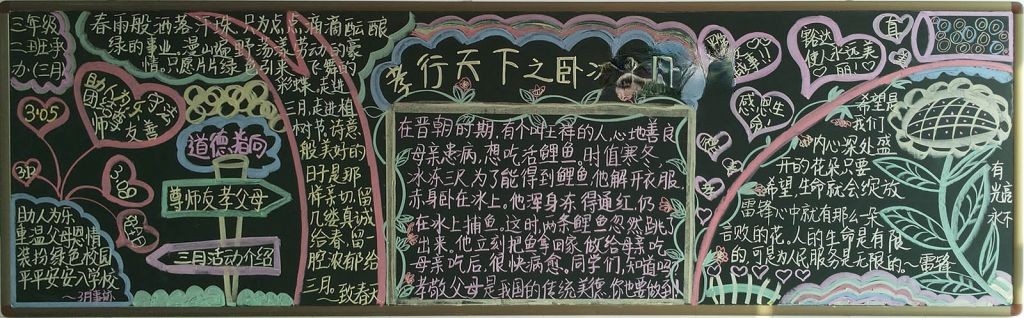 三年级
二班承
办.(三月)
春雨般洒落汗珠,只为点点滴滴酝酿
绿的事业。漫山遍野荡漾劳动的豪
情。只愿片片绿色引来飞舞的
彩蝶.走进
三月.走进植
树节.诗意
般美好的
时是那
样亲切.留
几缕真诚
给春.留一
腔浓郁给
三月。~致春天
3.05
助人为乐
团结
师 友善
3.12
3.08
道德指向
尊师友孝父母
三月活动介绍
助人为乐
重温父母恩情
装扮绿色校园
平平安安入学校
孝行天下之卧冰
在晋朝时期,有个叫王祥的人,心地善良
母亲患病,想吃活鲤鱼.时值寒冬.
冰冻三尺.为了能得到鲤鱼.他解开衣服.
赤身卧在冰上.他浑身冻得通红.仍
在冰上捕鱼。这时.两条鲤鱼忽然跳
出来.他立刻把鱼拿回家.做给母亲吃
母亲吃后.很快病愈。同学们,知道吗?
孝敬父母是我国的传统美德.你也要做到!
豁达
使人永远美
丽!
感恩生
命
希望是
我们
内心深处盛
开的花朵只要
希望.生命就会绽放
雷锋心中就有那么一朵
言败的花.人的生命是有限
的,可是为人民服务是无限的。~雷锋
有
永不